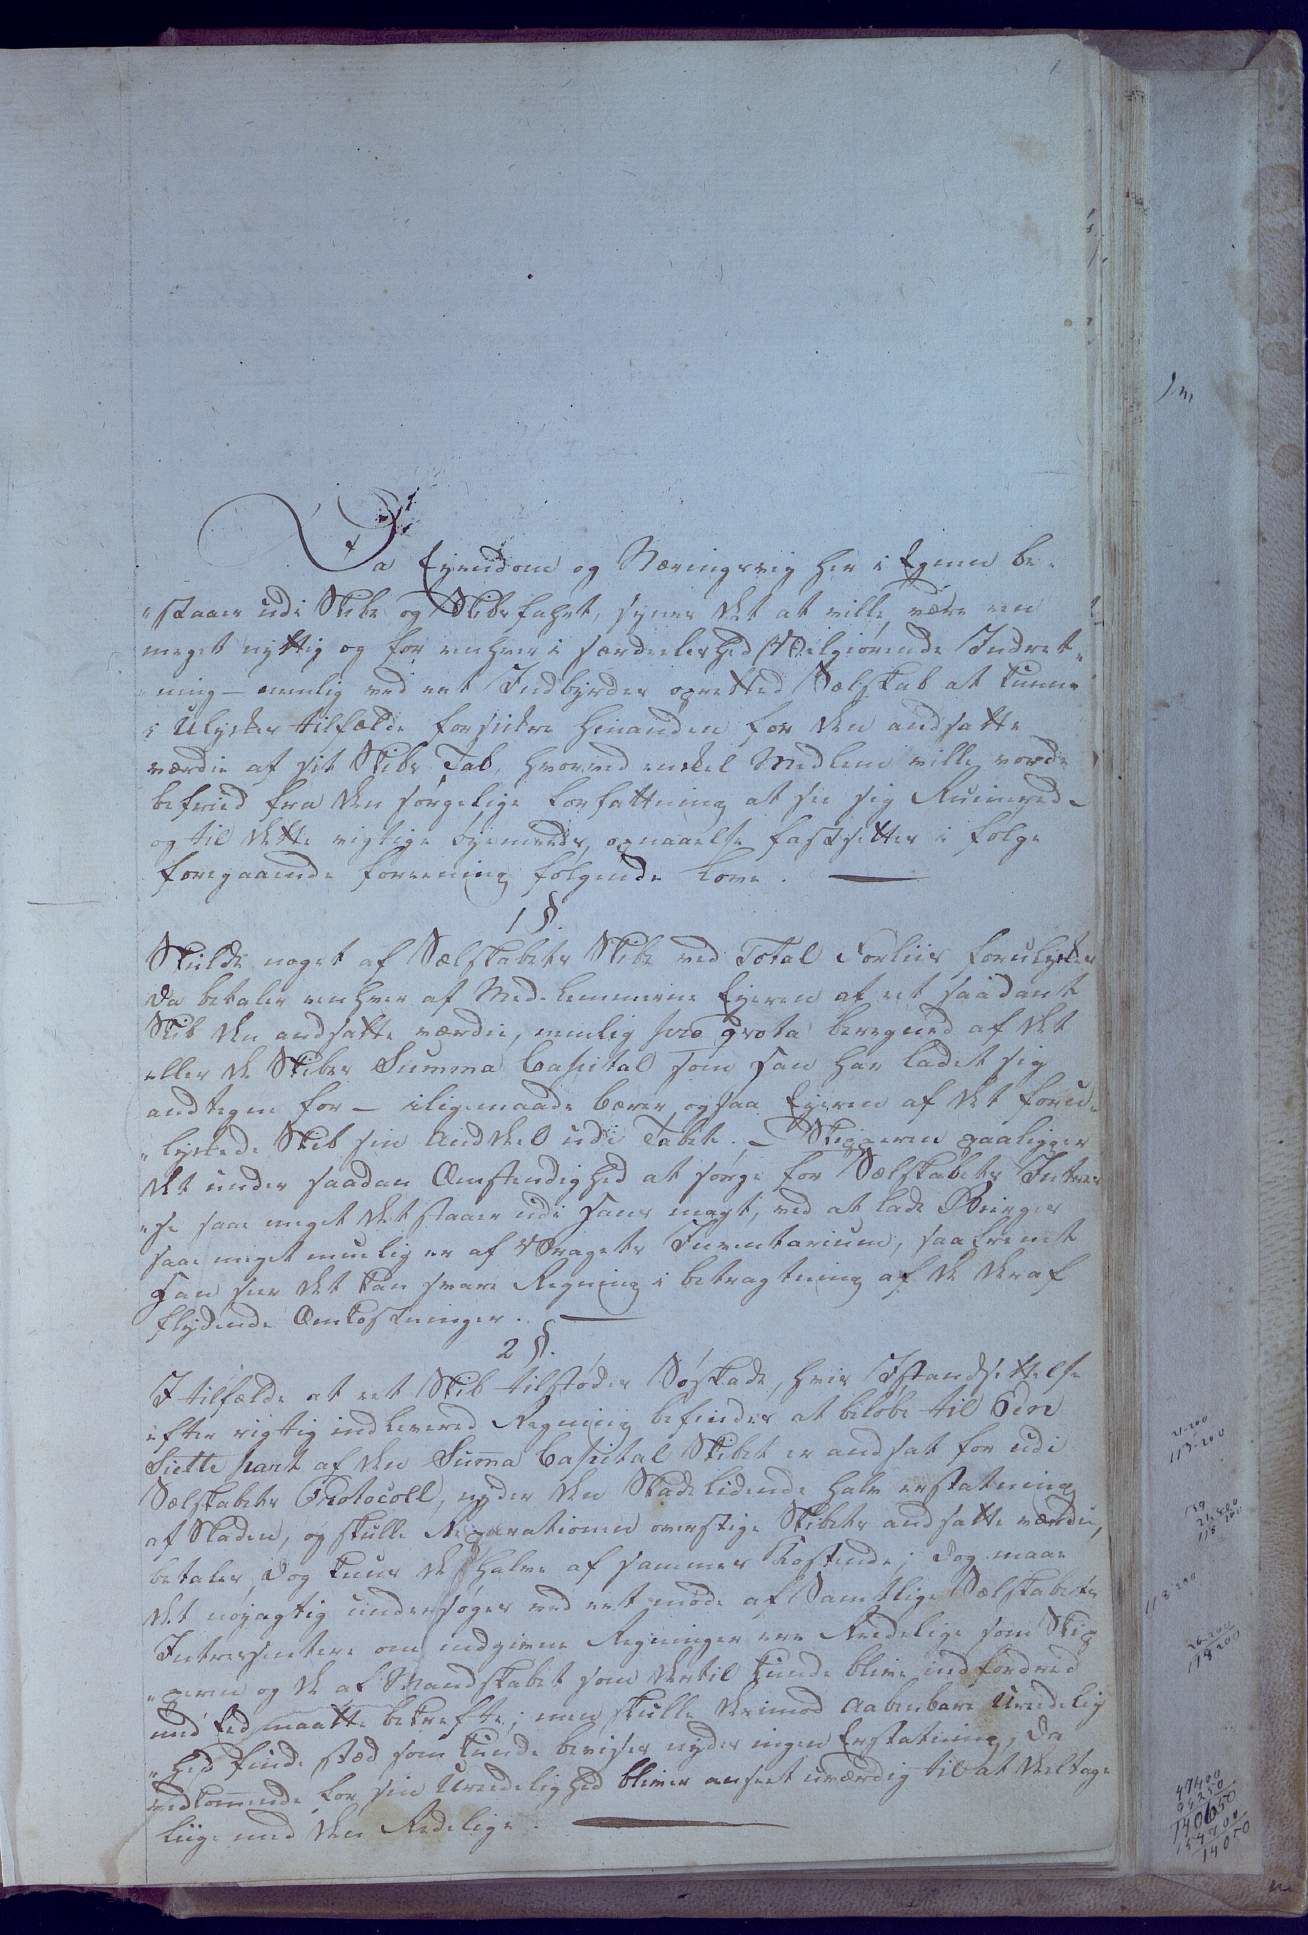 Da Eyendom og Næringsvej her i Egnen be-
"staaer udi Skibe og Skibsfahrt, synes det at ville være een
meget nyttig og for enhver i særdeeleshed Velgiørende Indret-
"ning – nemlig ved eet Indbyrdes opretted Sælskab at kunne
i Ulykkes tilfælde forsikre hinanden for den andsatte
værdie af sit Skibs Tab, hvorved enkel Medlem ville vorde
befried fra den sørgelige forfattning at see sig Ruinered –
og til dette vigtige øyemeeds opnaaelse fastsettes i følge
foregaaende foreening følgende Love. —
1 §.
Skulde noget af Sælskabets Skibe ved Total Forliis forulykkes
da betaler enhver af Medlemmerne Eyeren af eet saadant
Skib den andsatte værdie, nemlig pro qvota beregned af det
eller de Skibes Summa Capital som han har ladet sig
andtegne for – iligemaade bærer ogsaa Eyeren af det foru-
"lykkede Skib sin Andeel udi Tabet. – Skipperen paaligger
det under saadan Omstendighed at sørge for Sælskabets Intres-
"se saa meget det staaer udi hans magt, ved at lade Bierges
saa meget muelig er af Vragets Inventarium, saafremt
han seer det kan svare Regning i betragtning af de deraf
flydende Omkostninger. —
2 §.
I tilfælde at eet Skib tilstødes Søskade, hvis Istandsettelse
efter rigtig indlevered Regning befindes at beløbe til Een
Siette part af den Suma Capital Skibet er andsat for udi
Sælskabets Protocoll, nyder den Skadelidende halv erstatning
af Skaden, og skulle Reparationen overstige Skibets andsatte værdie,
betales dog kuns det halve af sammes Kostende; dog maae
det nøyagtig undersøges ved eet møde af Samtlige Sælskabets
Intressentere om indgivne Regninger ere Redelige som Skip
"peren og de af Mandskabet som dertil kunde blive indfordred
med Eed maatte bekrefte; men skulle derimod aabenbare Uredelig
"hed finde sted som kunde bevises nydes ingen Erstatning, da
vedkomende for sin Uredelighed bliver anseet uværdig til at deeltage
liige med den Redelige. —
21-200
118-200
118-200
118200
49400
140650
14050